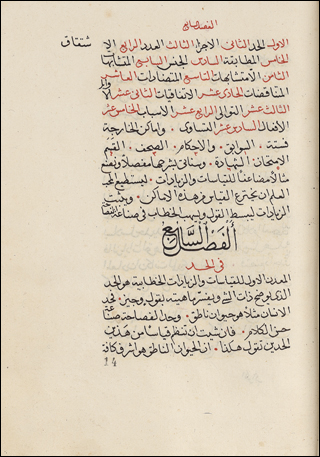 الفصل السابع
الاول الحد الثاني الاجزا الثالث العدد الرابع الا
شتقاق
الخامس المطابقة السادس الجنس السابع المتشابهات
الثامن الامتشابهات التاسع المتضادات العاشر
المناقضات الحادي عشر الاتفاقيات الثاني عشر
الثالث عشر التوالي الرابع عشر الاسباب الخامس عشر
الافعال السادس عشر التساوي. واماكن الخارجة
ستة. السوابق. والاحكام. الصيت. القسم
الامتحان الشهادة. وسناتي بشرحها مفصلا ونضع
مثالا مضاعفا للقياسات والزيادات. ليستطيع بحد
العلم ان يخترع القياس من هذه الاماكن. ويثبت
الزيادات ليبسط القول ويسهب الخطاب في صناعة
الفصل السابع
في الحد
المعدن الاول للقياسات والزيادات الخطابية هو الحد
الذي يوضح ذات الشي ويفسر ماهيته بقول وجيز. فحد
الانسان مثلا هو حيوان ناطق. وحد الفصاحة صناعة
حسن الكلام. فان شيت ان تنظم قياسا من هذين
الحدين تقول هكذا. ان الحيوان الناطق هو اشرف كافة
14